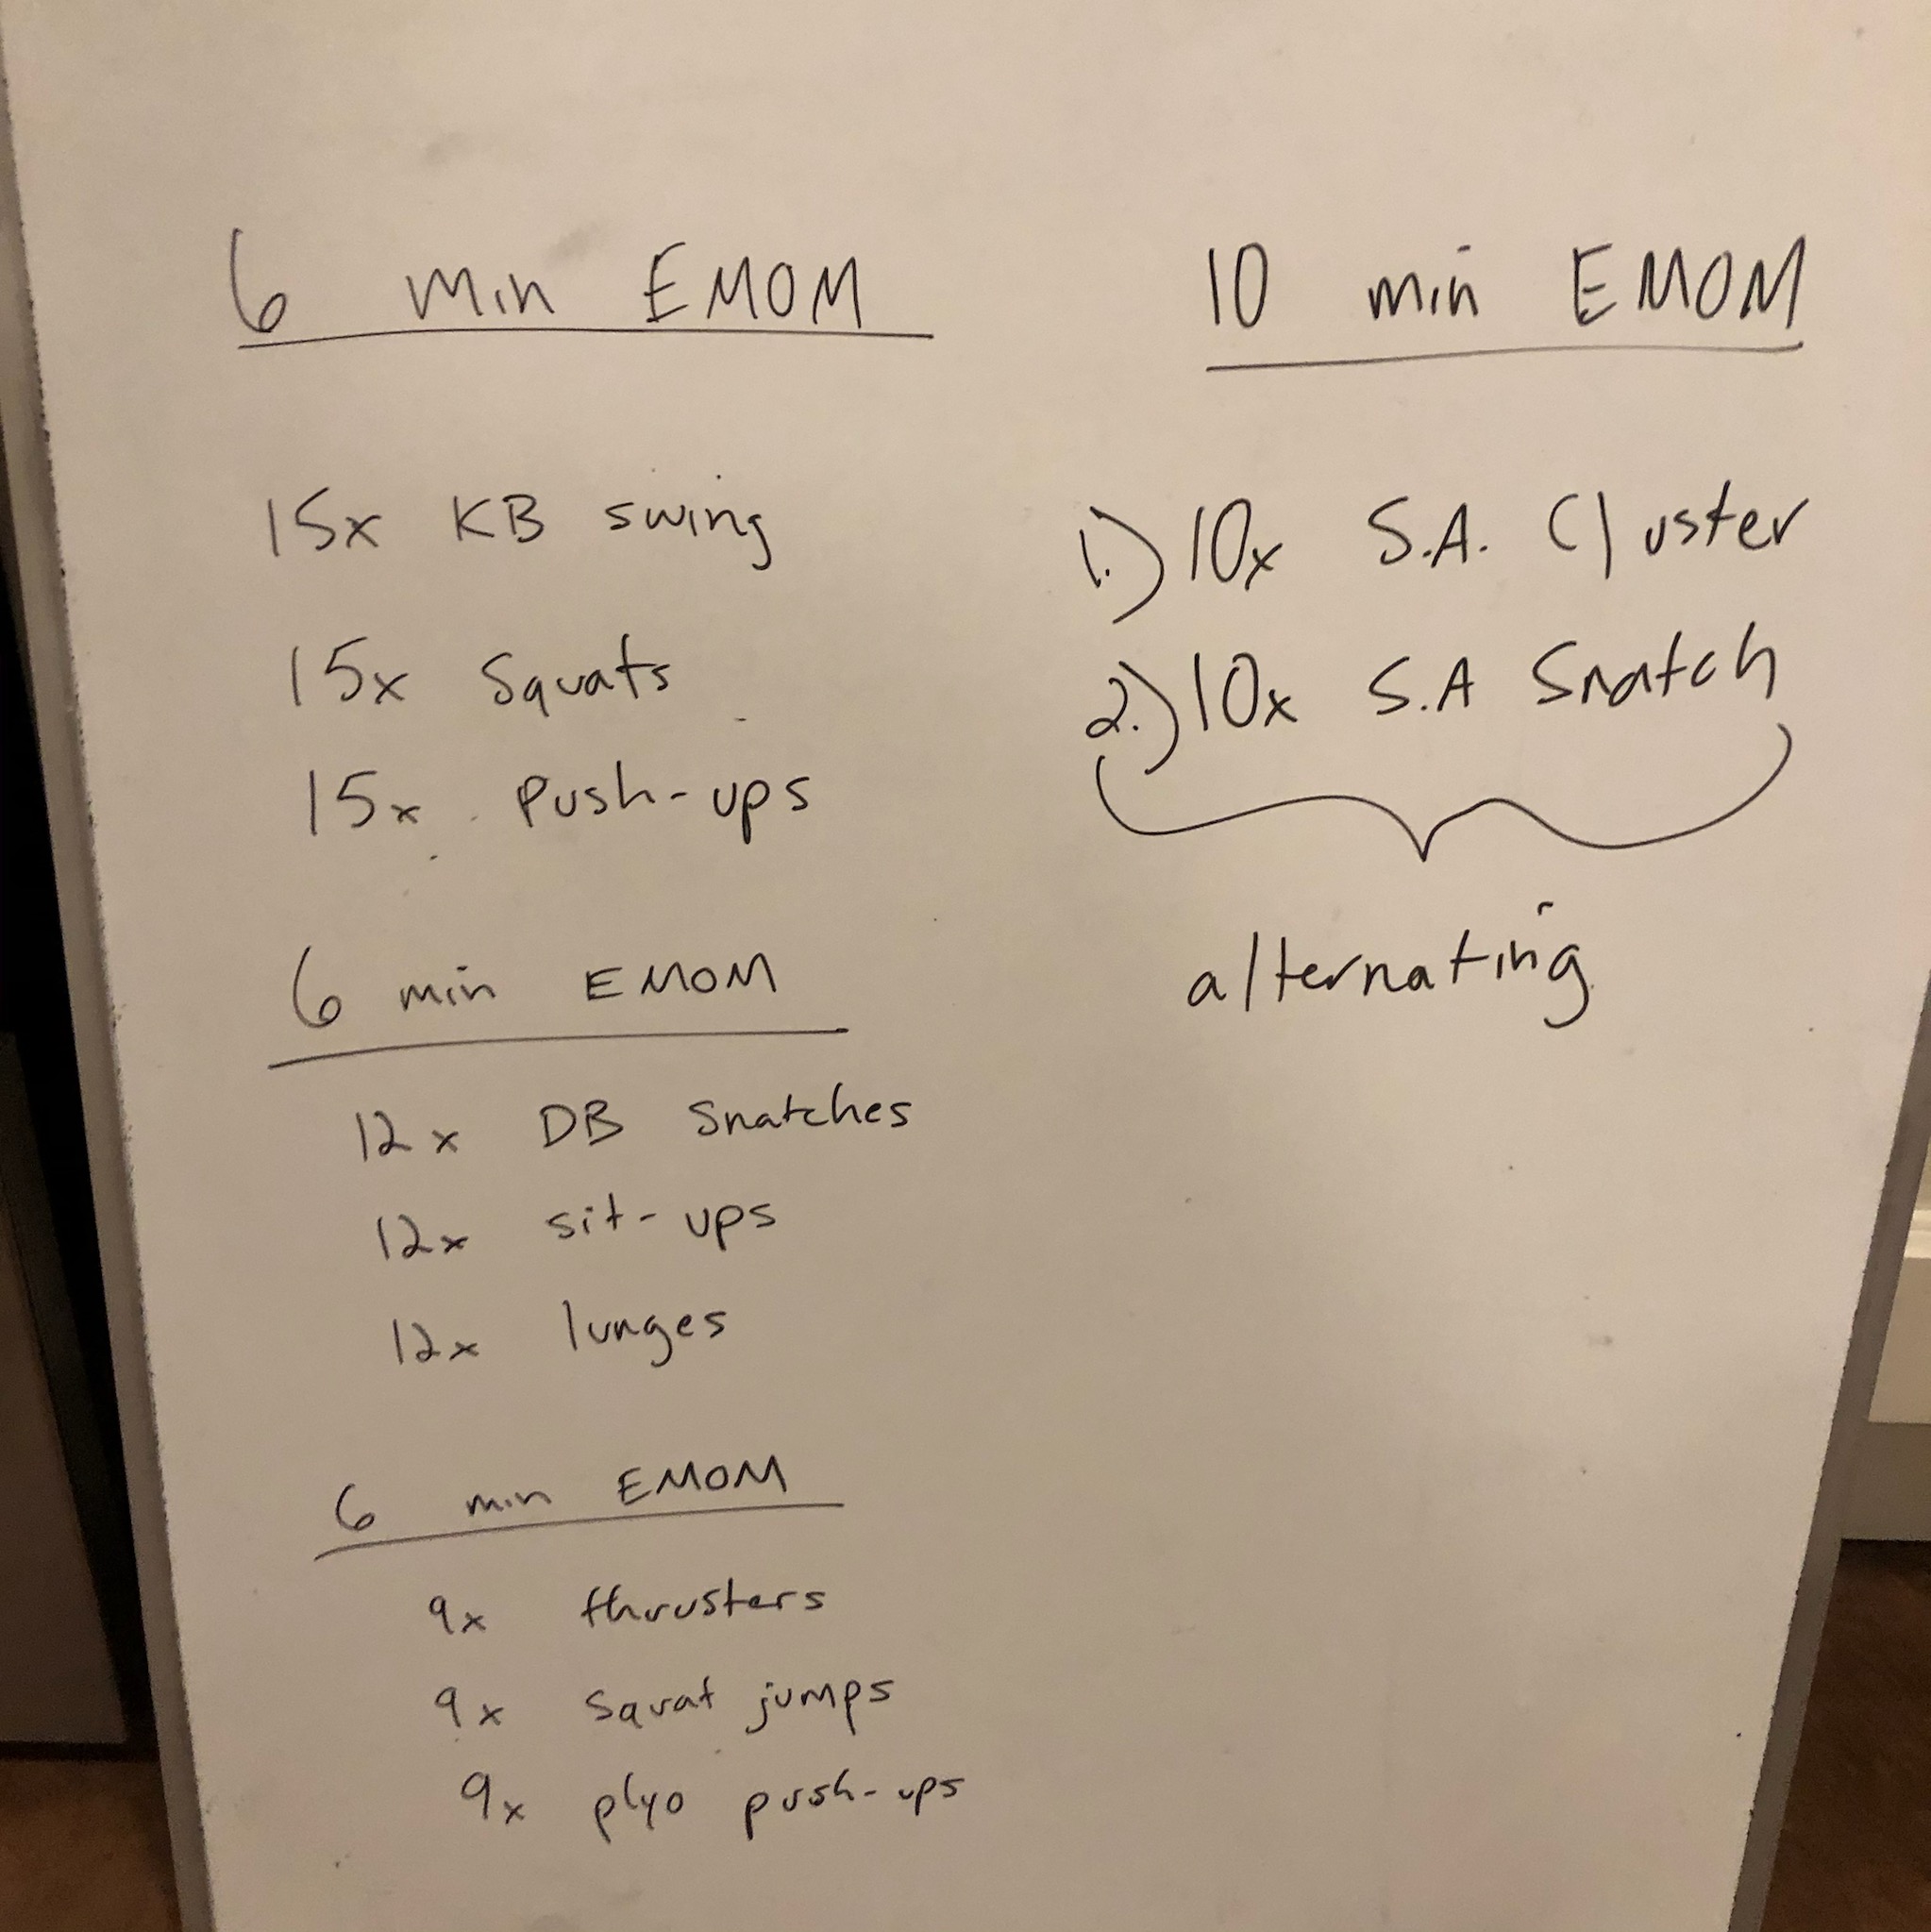 6 min EMOM
15x KB swing
15x Squats
15x Push-ups
6 min EMOM
12x DB Snatches
12x sit-ups
12x lunges
6 min EMOM
9x thrusters
9x Squat jumps
9x plyo push-ups
10 min EMOM
1.) 10x S.A. Cluster
2.) 10x S.A Snatch
alternating